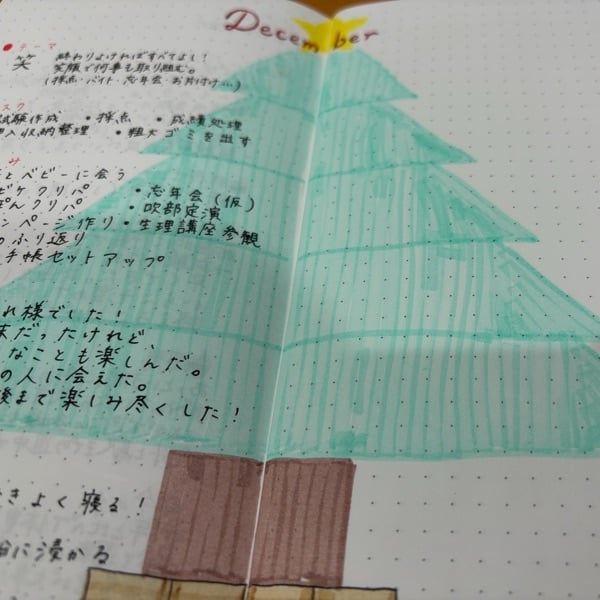 December
テーマ
笑 終わりよければすべてよし!
笑顔で何事も取り組む。
(採点・バイト・忘年会・お片付け…)
スク
試験作成 ・採点 ・成績処理
入収納整理 ・粗大ゴミを出す
み
とベビーに会う
ビケクリパ ・忘年会(仮)
ぽんクリパ ・吹部定演
ンページ作り ・生理講座参観
ふり返り
手帳セットアップ
れ様でした!
末だったけれど、
なことも楽しんだ。
の人に会えた。
後まで楽しみ尽くした!
きよく寝る!
に浸かる